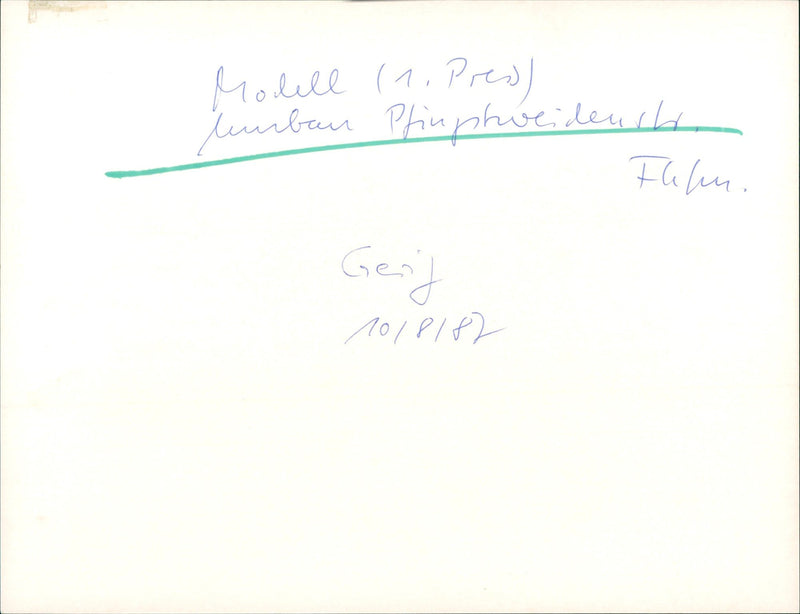 Modell (1. Preis)
Umbau Pfingstweidenstr.
Ffm.
10/8/87